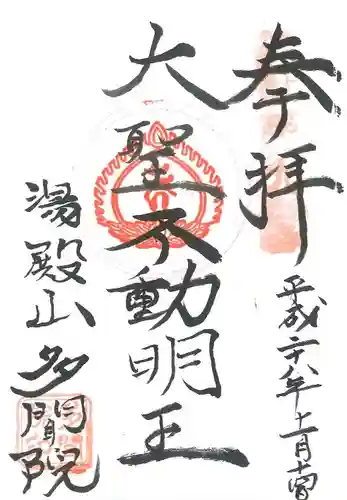 奉拝
平成二十八年十一月十四日
大聖不動明王
湯殿山
多聞院